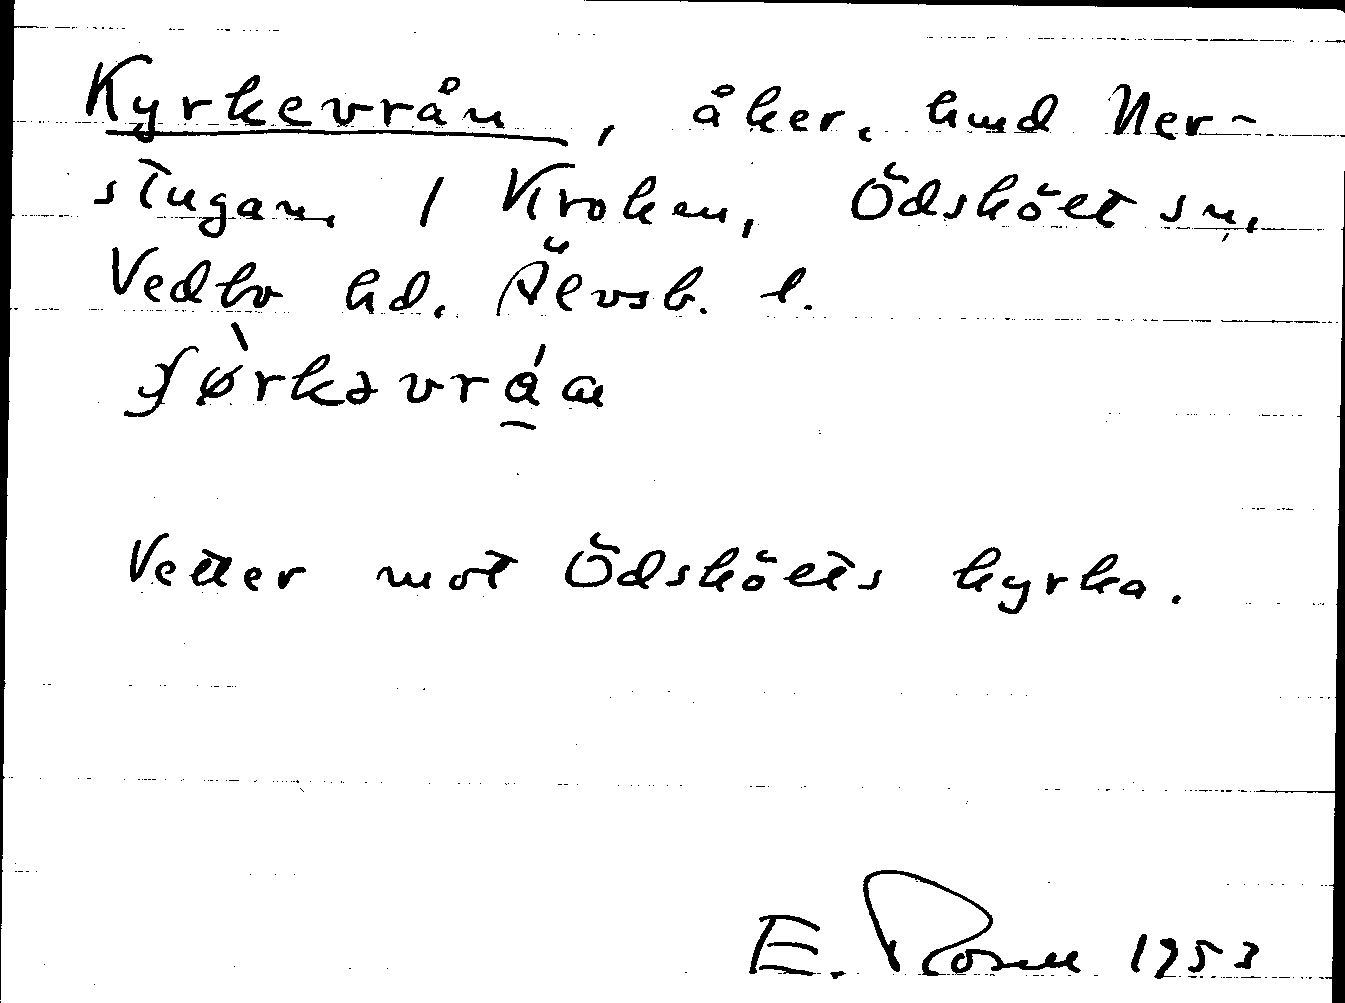 Kyrkevrån, åker, hmd Ner-
stugan, 1 Kroken, Ödskölt sn,
Vedbo hd. Älvsb. l.
Vetter mot Ödskölts kyrka.
E. Rosell 1953